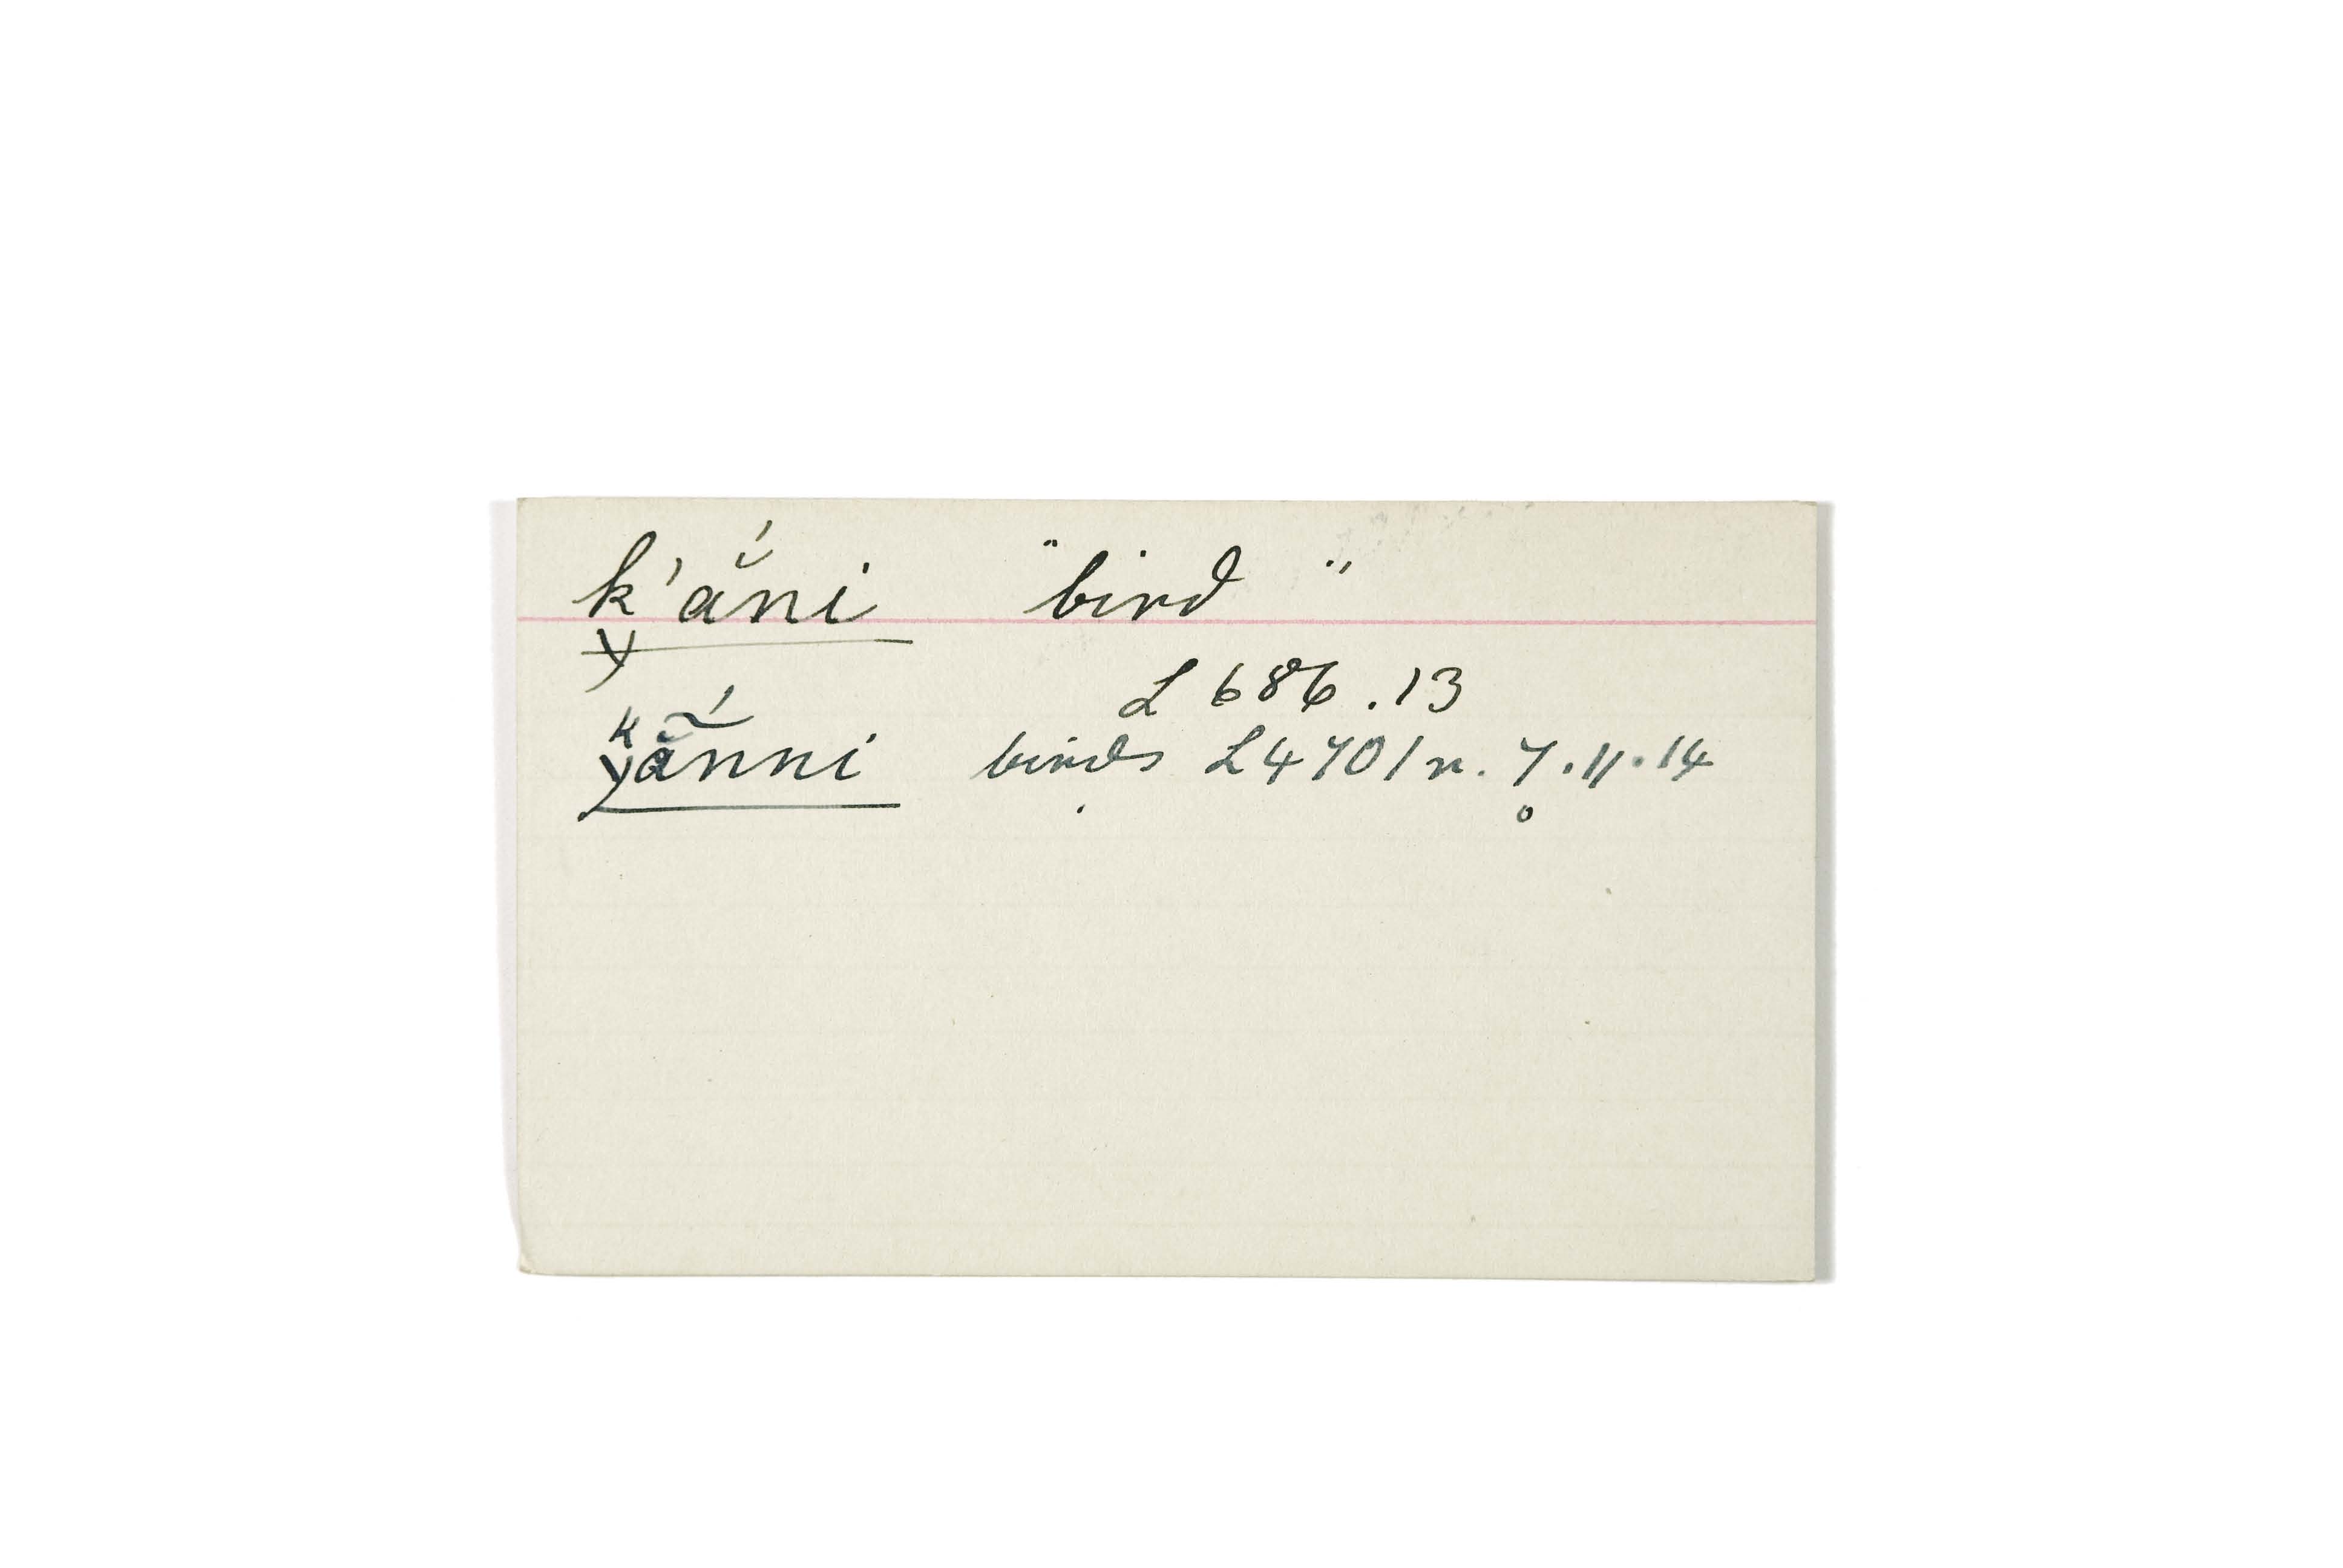 k'ắni "bird"
y
L 686.13
k
yā̆́nni birds L4701 r. 7.11.14